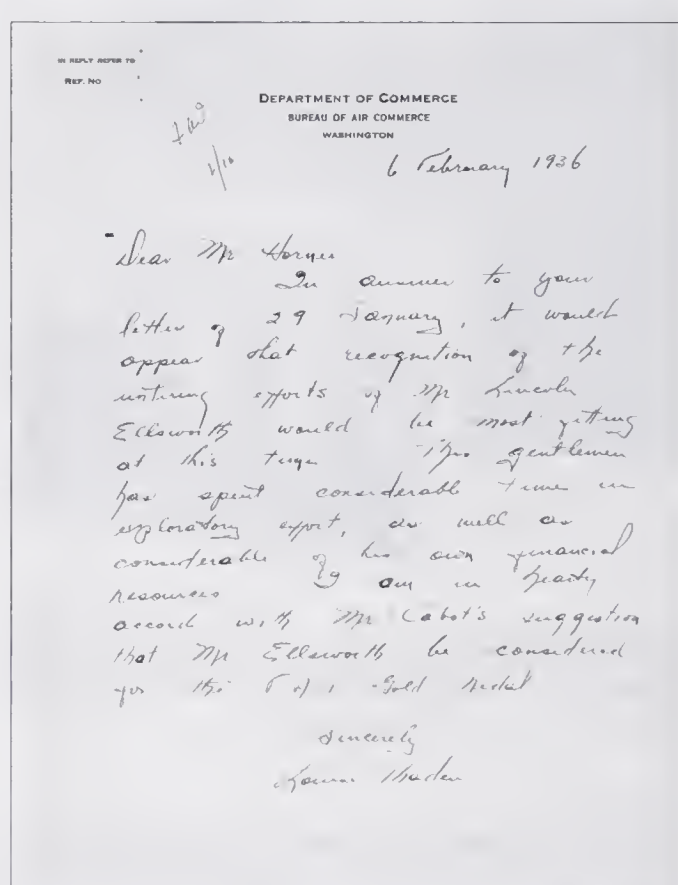 IN REPLY REFER TO
REF. NO
DEPARTMENT OF COMMERCE
BUREAU OF AIR COMMERCE
WASHINGTON
6 February 1936
Dear Mr Horner
In answer to your
letter of 29 January, it would
appear that recognition of the
untiring efforts of Mr Lincoln
Ellsworth would be most fitting
at this time This gentleman
has spent considerable time in
exploratory effort, as well as
considerable of his own financial
resources I am in hearty
accord with Mr Cabot's suggestion
that Mr Ellsworth be considered
for the Gold Medal
Sincerely
Thaden